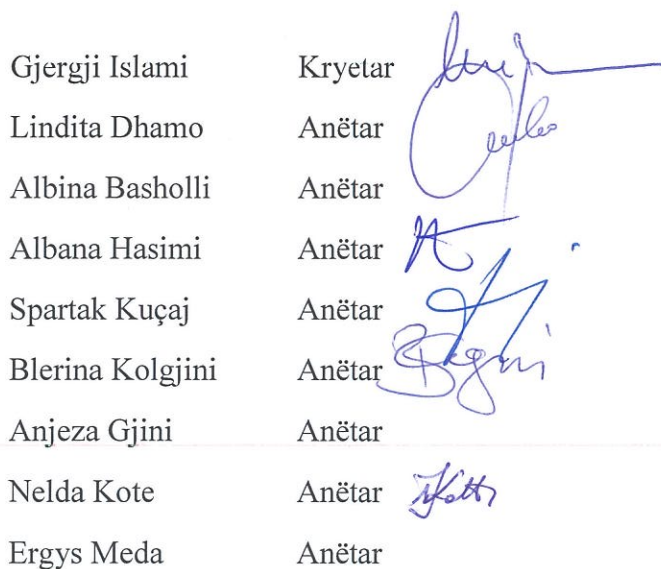 Gjergji Islami Kryetar
Lindita Dhamo Anëtar
Albina Basholli Anëtar
Albana Hasimi Anëtar
Spartak Kuçaj Anëtar
Blerina Kolgjini Anëtar
Anjeza Gjini Anëtar
Nelda Kote Anëtar
Ergys Meda Anëtar